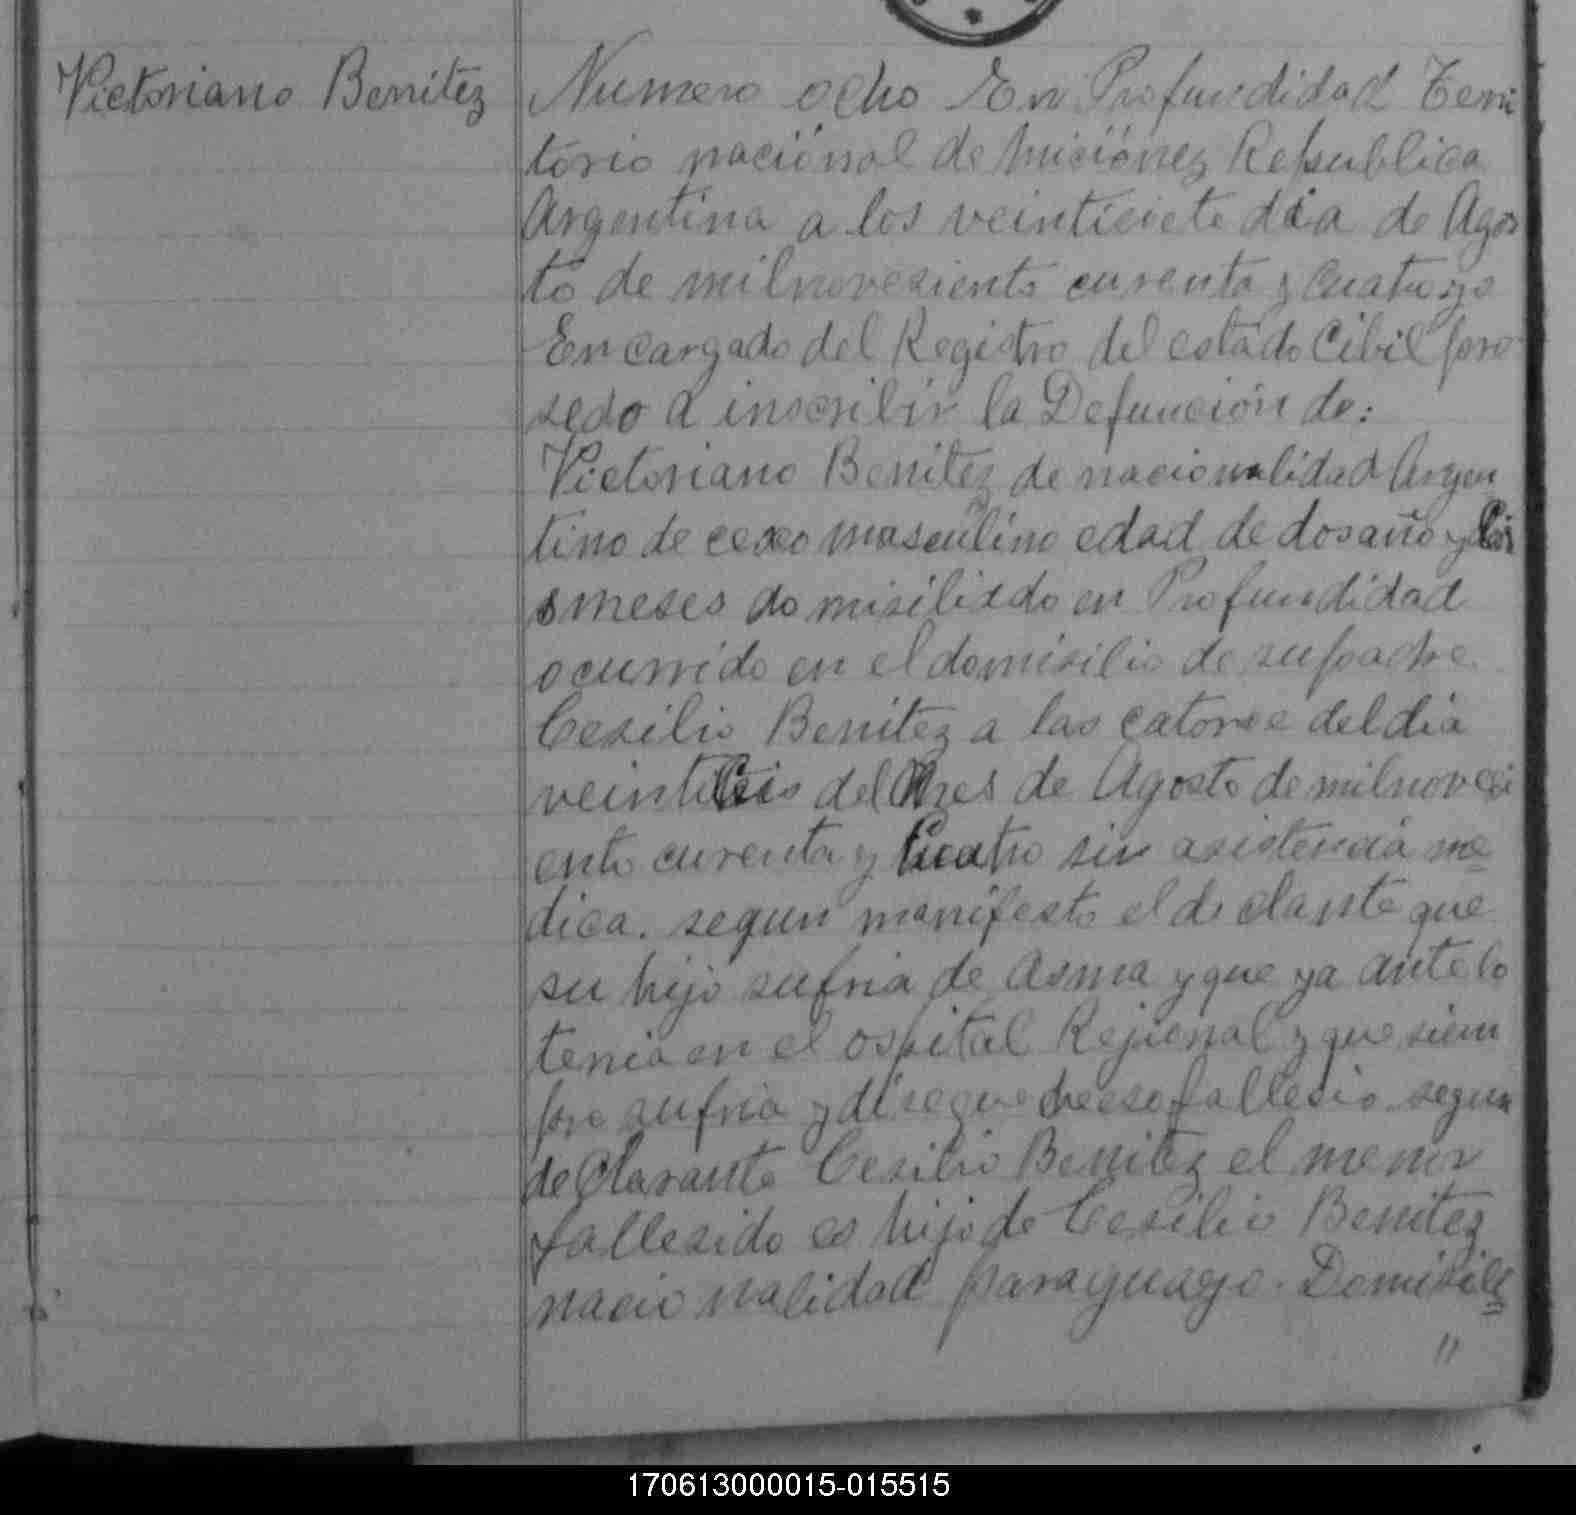 Victoriano Benitez
Numero ocho En Profundidad Terri
torio nacional de miciónez Republica
Argentina a los veinticiete dia de Agos
to de milnoveziento curenta y cuatro yo
Encargado del Registro del estado Cibil pro
sedo a inscribir la Defunción de:
Victoriano Benitez de nacionalidad Argen
tino de cexo masculino edad de dos año y
meses domisilizdo en Profundidad
ocurrido en el domisilio de su padre
Cesilio Benitez a las catorce del dia
veinticeis del mes de Agosto de milnoveci
ento curenta y Cuatro sin asistencia me
dica. segun manifesto el declante que
su hijo sufria de asma y que ya ante lo
tenia en el ospital Rejional y que siem
pre sufria y dise que de eso fallesio segun
deClarante Cesilio Benitez el menor
fallesido es hijo de Cesilio Benitez
nacionalidad paraguayo. Domisili
"
170613000015-015515